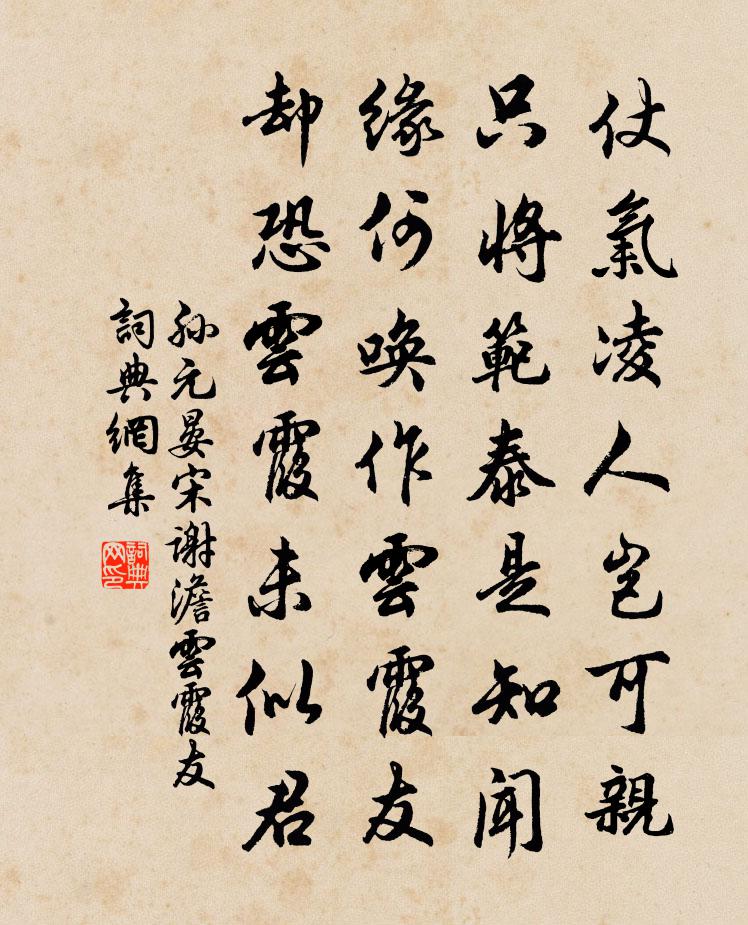 仗氣凌人豈可親
只將範泰是知聞
緣何喚作雲霞友
却恐雲霞未似君
孫元晏宋謝澹雲霞友
詞典網集
詞典
网印